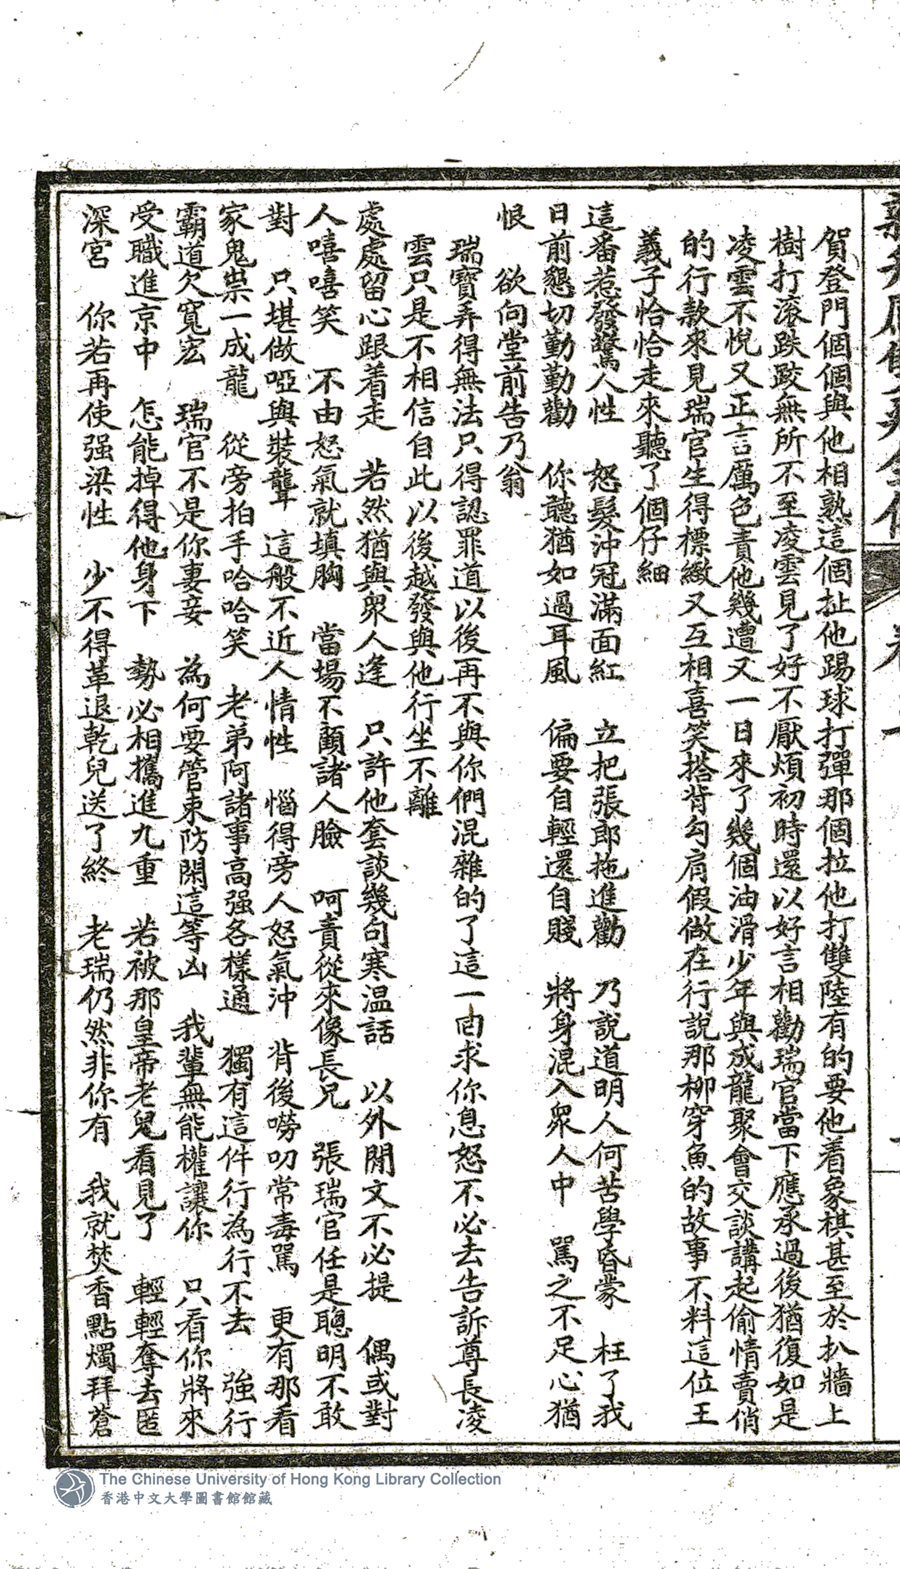 賀登門個個與他相熟這個扯他踢球打彈那個拉他打雙陸有的要他着象棋甚至於扒牆上
樹打滾跌跤無所不至凌雲見了好不厭煩初時還以好言相勸瑞官當下應承過後猶復如是
凌雲不悅又正言厲色責他幾遭又一日來了幾個油滑少年與成龍聚會交談講起偷情賣俏
的行款來見瑞官生得標緻又互相喜笑搭背勾肩假做在行說那柳穿魚的故事不料這位王
義子恰恰走來聽了個仔細
這番惹發驚人性　怒髮沖冠滿面紅　立把張郎拖進勸　乃說道明人何苦學昏蒙　枉了我
日前懇切勤勤勸　你聽猶如過耳風　偏要自輕還自賤　將身混入眾人中　罵之不足心猶
恨　欲向堂前告乃翁
瑞寶弄得無法只得認罪道以後再不與你們混雜的了這一囬求你息怒不必去告訴尊長凌
雲只是不相信自此以後越發與他行坐不離
處處留心跟着走　若然猶與眾人逢　只許他套談幾句寒温話　以外閒文不必提　偶或對
人嘻嘻笑　不由怒氣就填胸　當場不顧諸人臉　呵責從來像長兄　張瑞官任是聰明不敢
對　只堪做啞與裝聾　這般不近人情性　惱得旁人怒氣沖　背後嘮叨常毒駡　更有那看
家鬼祟一成龍　從旁拍手哈哈笑　老弟阿諸事高强各樣通　獨有這件行為行不去　強行
霸道欠寬宏　瑞官不是你妻妾　為何要管束防閑這等凶　我輩無能權讓你　只看你將來
受職進京中　怎能掉得他身下　勢必相攜進九重　若被那皇帝老兒看見了　輕輕奪去匿
深宮　你若再使强梁性　少不得革退乾兒送了終　老瑞仍然非你有　我就焚香點燭拜蒼
The Chinese University of Hong Kong Library Collection
香港中文大學圖書館館藏